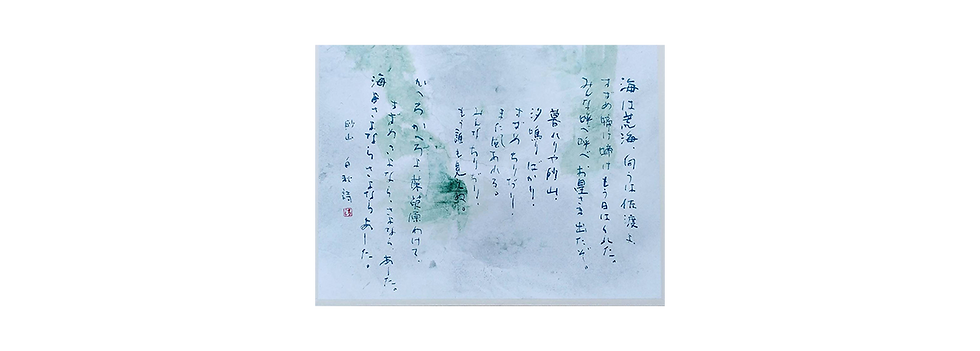 海は荒海、向うは佐渡よ、
すずめ啼け啼けもう日はくれた。
みんな呼べ呼べお星さま出たぞ。
暮れりや砂山、
汐鳴りばかり、
すずめちりぢり、
また風あれる。
みんなちりぢり、
もう誰も見えぬ。
かへろかへろよ茱萸原わけて、
すずめさよなら、さよならあした。
海よさよならさよならあした。
砂山 白秋詩